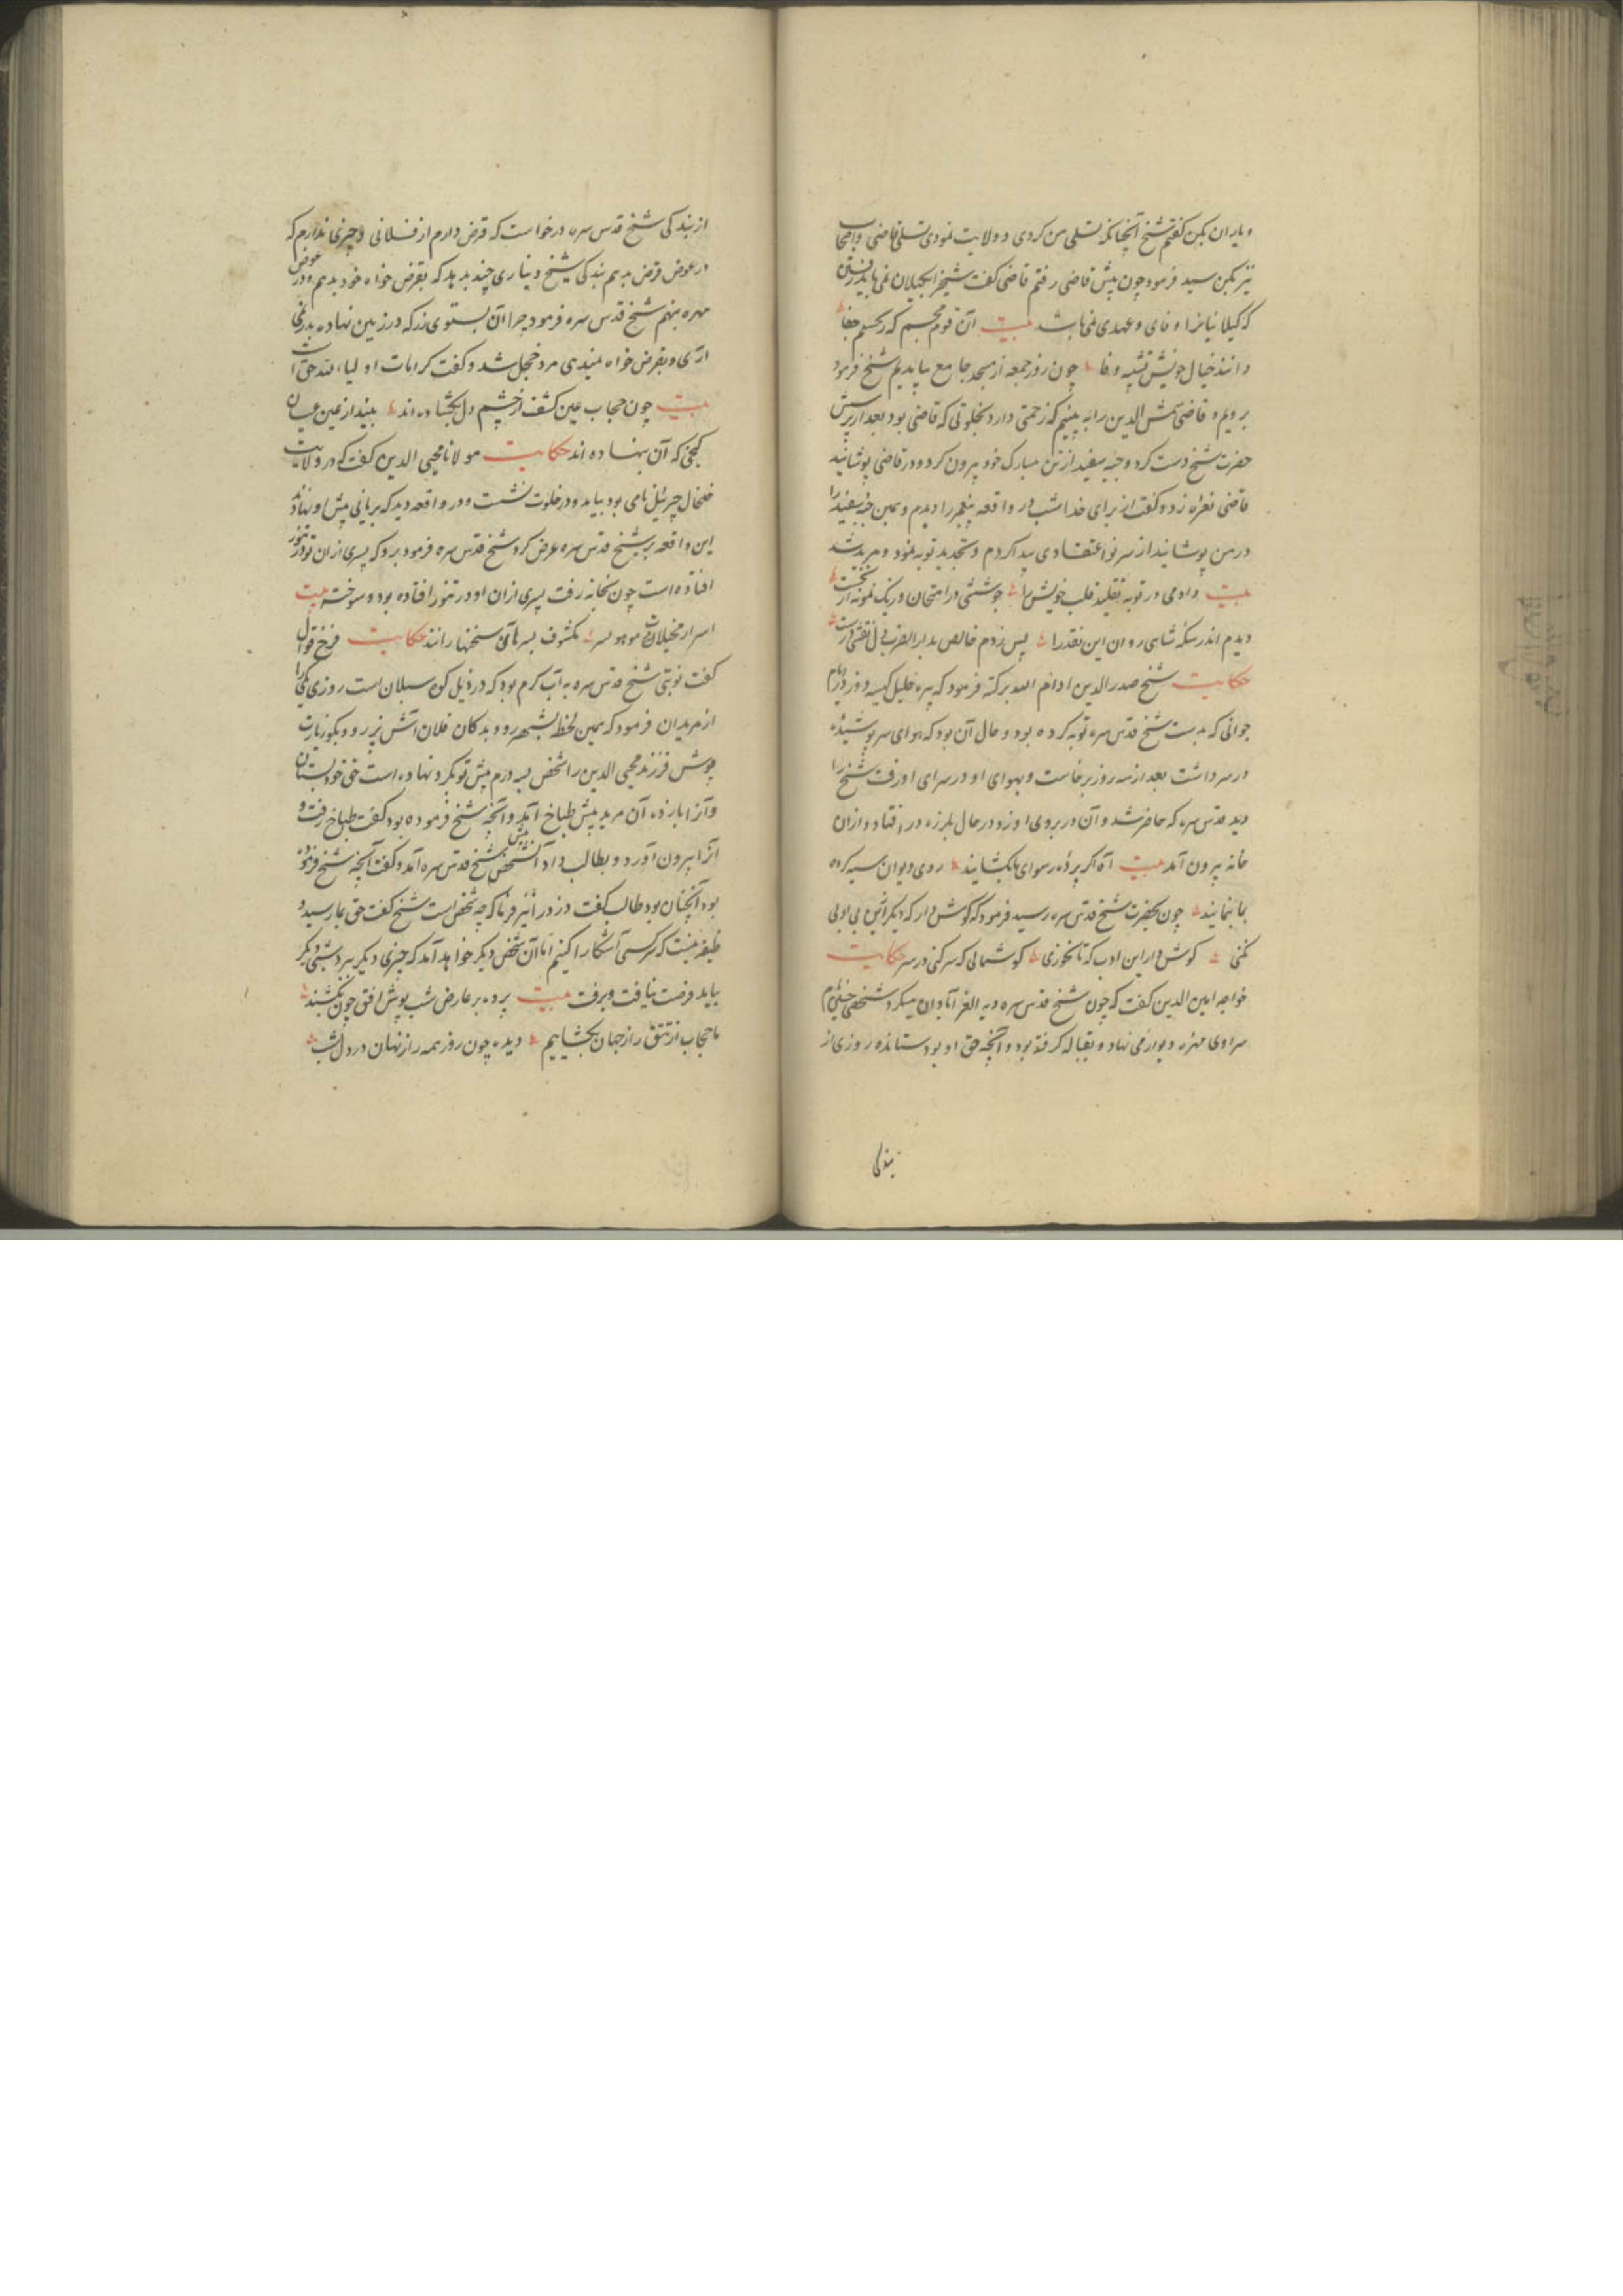 و یاران بکن گفتم شیخ آنچنانکه تسلی من کردی و ولایت نمودی تسلی قاضی و اصحاب
نیز بکن سید فرمود چون پیش قاضی رفتم قاضی گفت شیخ را بگیلان نمی باید رفتن
که گیلانیانرا وفای و عهدی نمی باشد بیت آن قوم مجسم که رجسم جفا
دانند خیال خویش تشبیه وفا چون روز جمعه از مسجد جامع بیامدیم شیخ فرمود
برویم و قاضی شمس الدین را به بینیم که زحمتی دارد بخلوتی که قاضی بود بعد از پرسش
حضرت شیخ دست کرد و جبه سفید از تن مبارک خود بیرون کرد و در قاضی پوشانید
قاضی نعره زد و گفت از برای خدا امشب در واقعه پیغمبر را دیدم و همین جبه سفید را
در من پوشانید از سر نو اعتقادی پیدا کردم و تجدید توبه نمود و مرید شد
بیت دادمی در توبه تقلید قلب خویش را جوششی در امتحان و رنگ نمونه از نخست
دیدم اندر سکه شاهی روان این نقد را پس زدم خالص بدار الضرب دل نقشی درست
حکایت شیخ صدرالدین ادام الله برکته فرمود که پیره خلیل کیسه دوز در ایام
جوانی که بدست شیخ قدس سره توبه کرده بود و حال آن بود که هوای سرپوشیده
در سر داشت بعد از سه روز برخاست و بهوای او در سرای او رفت شیخ را
دید قدس سره که حاضر شد و آن در بروی او زد در حال بلرزه در افتاد و از آن
خانه بیرون آمد بیت آه اگر پرده رسوای ما بکشایند روی دیوان سیه کرده
بما بنمایند چون بحضرت شیخ قدس سره رسید فرمود که گوش دار که دیگر این بی ادبی
نکنی گوش دار این ادب که تا نخوری گوشمالی که سر کنی در سر حکایت
خواجه امین الدین گفت که چون شیخ قدس سره دیه الغر آبادان میکرد شخصی
سراوی مهره دیوار می نهاد و بقباله گرفته بود و آنچه حق او بود ستانده روزی از
بندگی
از بندگی شیخ قدس سره درخواست که قرض دارم از فلانی و چیزی ندارم که
در عوض قرض بدهم بندگی شیخ دیناری چند بدهد که بقرض خواه خود بدهم و در عوض
مهره بنهم شیخ قدس سره فرمود چرا آن بستوی زر که در زمین نهاده بدر نمی
آری و بقرض خواه نمیدی مرد خجل شد و گفت کرامات اولیاء الله حق است
بیت چون حجاب عین کشف از چشم دل بکشاده اند بیند از عین عیان
گنجی که آن بنهاده اند حکایت مولانا محیی الدین گفت که در ولایت
خلخال جبرئیل نامی بود بیامد و در خلوت نشست و در واقعه دید که بریانی پیش او نهادند
این واقعه بر شیخ قدس سره عرض کرد شیخ قدس سره فرمود برو که پسری از آن تو در تنور
افتاده است چون بخانه رفت پسری از آن او در تنور افتاده بود و سوخته بیت
اسرار مخیلات موهوبه مکشوف بسرهای سخنها رانند حکایت فرخ قوال
گفت نوبتی شیخ قدس سره به آب گرم بود که در ذیل کوه سبلان است روزی یکی را
از مریدان فرمود که همین لحظه بشهر رو و بدکان فلان آش پز رو و بگو زیارت
پوش فرزند محیی الدین را شخص بسه درم پیش تو گرو نهاده است حق خود بستان
و آنرا باز ده آن مرید پیش طباخ آمد و آنچه شیخ فرموده بود گفت طباخ رفت و
آنرا بیرون آورد و بطالب داد آن شخص پیش شیخ قدس سره آمد و گفت آنچه شیخ فرموده
بود آنچنان بود طالب گفت دزد را نیز فرما که چه شخص است شیخ گفت حق بما رسید و
وظیفه نیست که سر کسی آشکارا کنیم اما آن شخص دیگر خواهد آمد که چیزی دیگر ببرد شبی دیگر
بیامد فرصت نیافت و برفت بیت پرده بر عارض شب پوش افق چون بکشند
ما حجاب از تتق راز جهان بکشاییم دیده چون روز همه راز نهان در دل شب